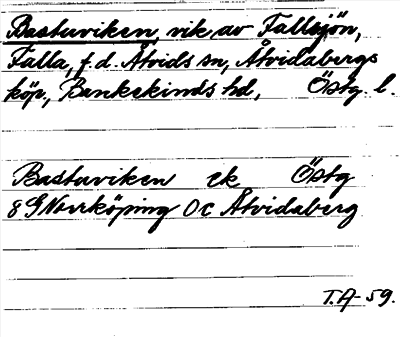 Bastuviken, vik av Fallsjön,
Falla, f.d. Åtvids sn, Åtvidabergs
köp., Bankekinds hd, Östg. l.
Bastuviken ek Östg
8G Norrköping 0c Åtvidaberg
T.A-59.